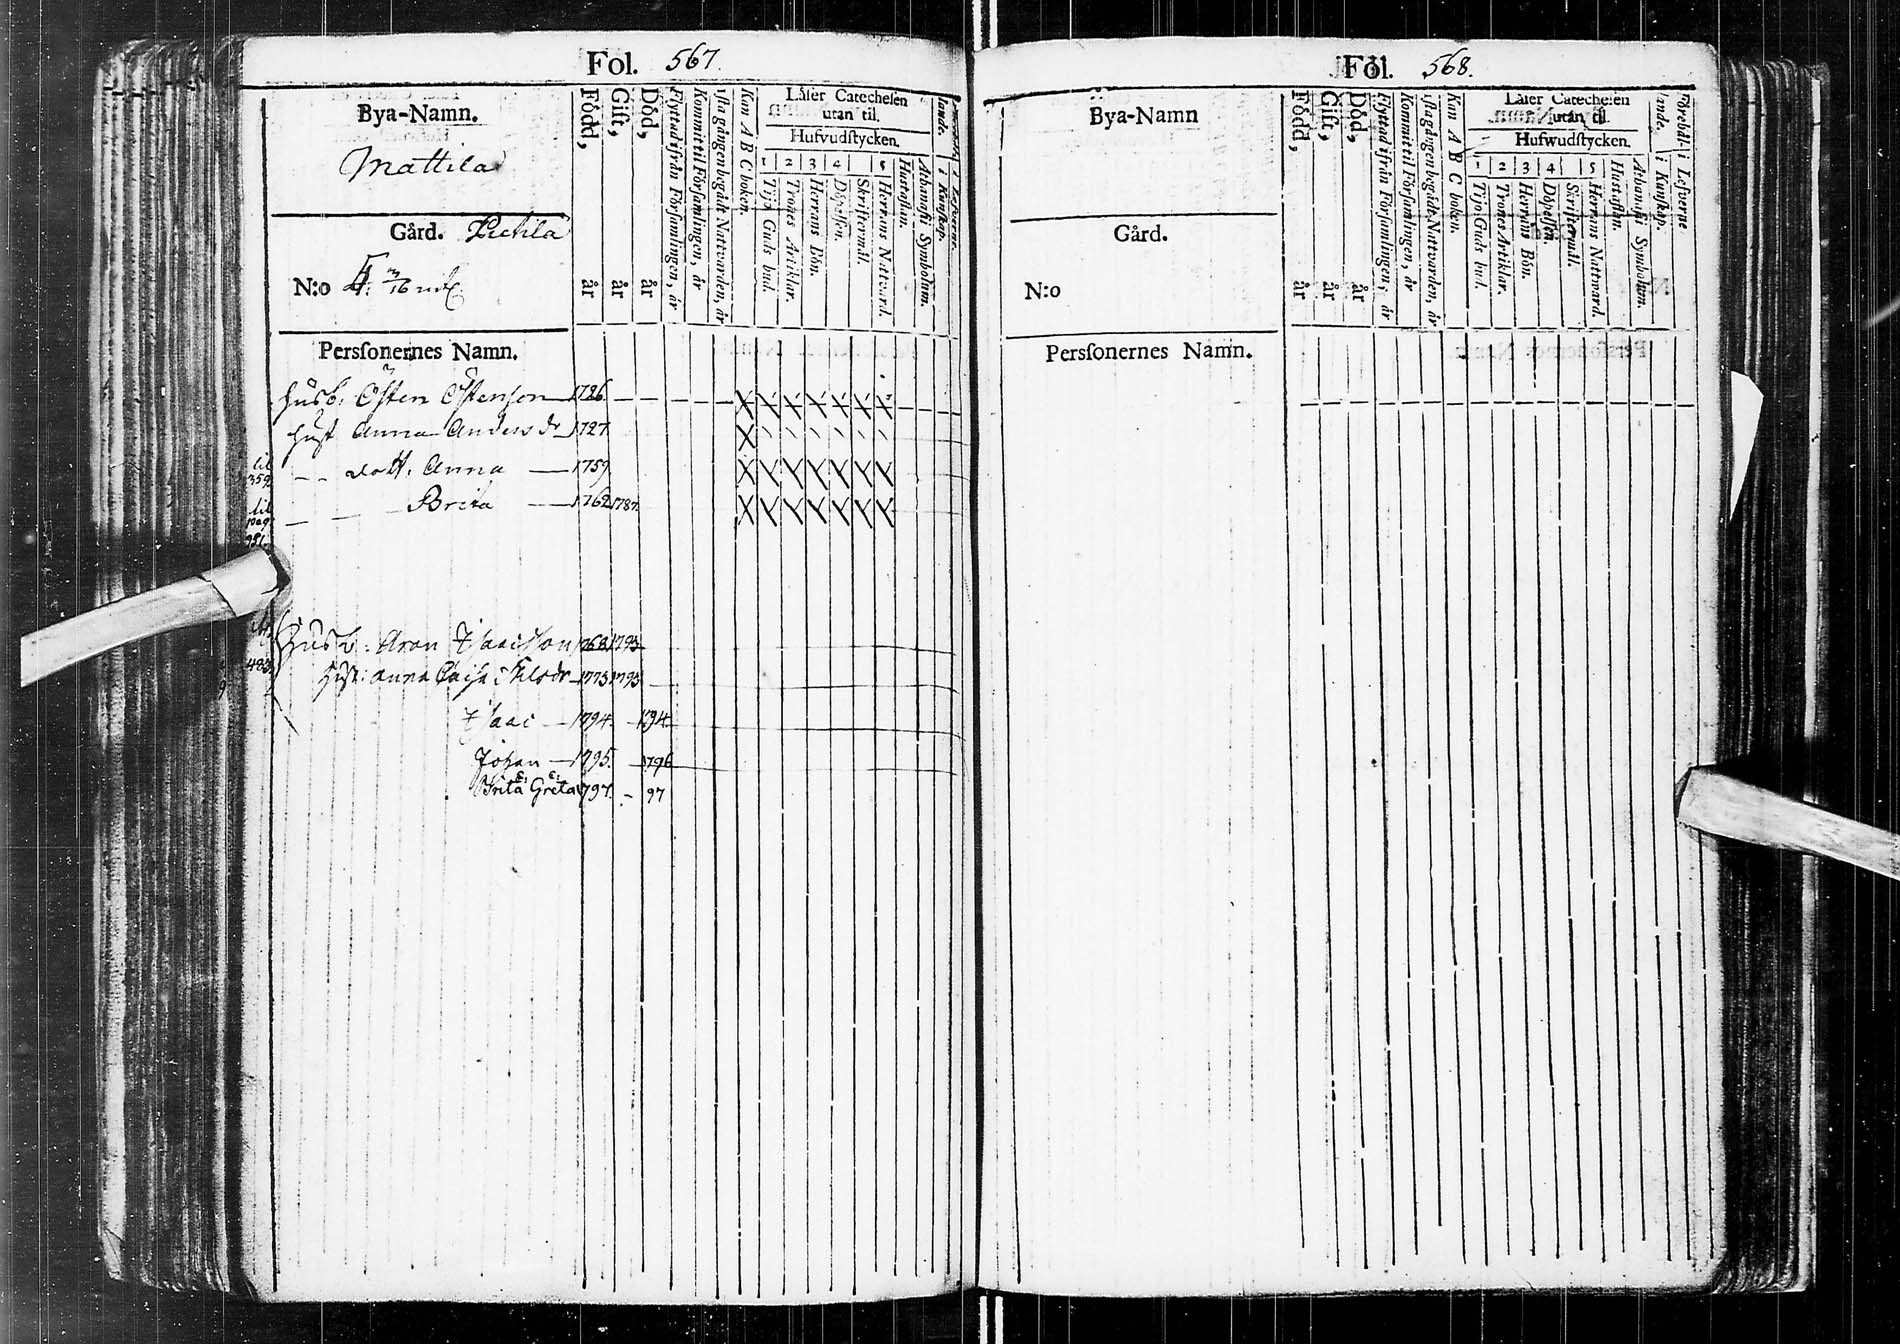 Fol. 567.
Bya-Namn.
Mattila
Gård.
N:o 4. 3/16
Född, år
Gift, år
Död, år
Flyttad ifrån Församlingen, år
Kommit til Församlingen, år
Kan A B C boken.
Låser Catechesen
utan til.
Hufvudstycken.
1 2 3 4 5
Tijo Guds bud.
Trones Artiklar.
Herrans Bön.
Döpelsen.
Skriftermål.
Herrans Nattvard.
Hustaflan.
Athanasii Symbolum.
Personernes Namn.
Husb: Östen Östenson 1726
Hust Anna Anders dr 1727
dott. Anna 1759
Brita 1762 1787
Husb: Aron Isaacsson 1768 1793
Hust: Anna Caisa Nilsdr 1773 1793
Isaac 1794 1794
Johan 1795 1796
Brita Greta 1797 97
Fol. 568.
Bya-Namn
Gård.
N:o
Född, år
Gift, år
Död, år
Flyttad ifrån Församlingen, år
Kommit til Församlingen, år
Kan A B C boken.
Låser Catechesen
utan til.
Hufwudstycken.
1 2 3 4 5
Tijo Guds bud.
Trones Artiklar.
Herrans Bön.
Döpelsen.
Skriftermål.
Herrans Nattward.
Hustaflan.
Athanasii Symbolum.
Personernes Namn.